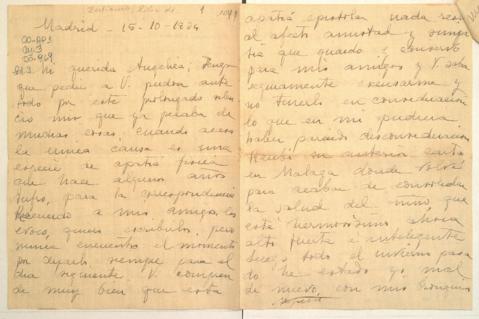 Madrid - 15-10-1924
Mi querida Angeles: Tengo
que pedir a V. perdon ante
todo por este prolongado silen
cio mio que ya pasaba de
muchas cosas, cuando acaso
la unica causa es una
especie de apatia
que hace algunos años
sufro, para la correspondencia
Recuerdo a mis amigos, los
evoco, quiero escribirles, pero
nunca encuentro el momento
por dejarlo siempre para el
dia siguiente. V. compren
de muy bien que esta
apatia epistolar nada resta
al afecto amistad y simpa
tia que guardo y conservo
para mis amigos y V. sabra
seguramente excusarme y
no tenerlo en consideracion
lo que en mi pudiera
haber parecido desconsideracion
Recibi su anterior carta
en Malaga donde volvi
para acabar de consolidar
la salud del niño que
está hermosisimo ahora
alto fuerte e inteligente
todo el invierno pasa
do he estado yo mal
de nuevo, con mis bronquios